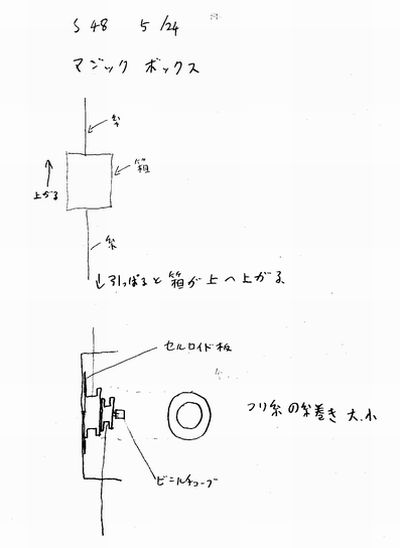 S 48 5/24
マジック ボックス
糸
箱
上がる
糸
↓引っぱると箱が上へ上がる
セルロイド板
つり糸の糸巻き 大.小
ビニルチューブ